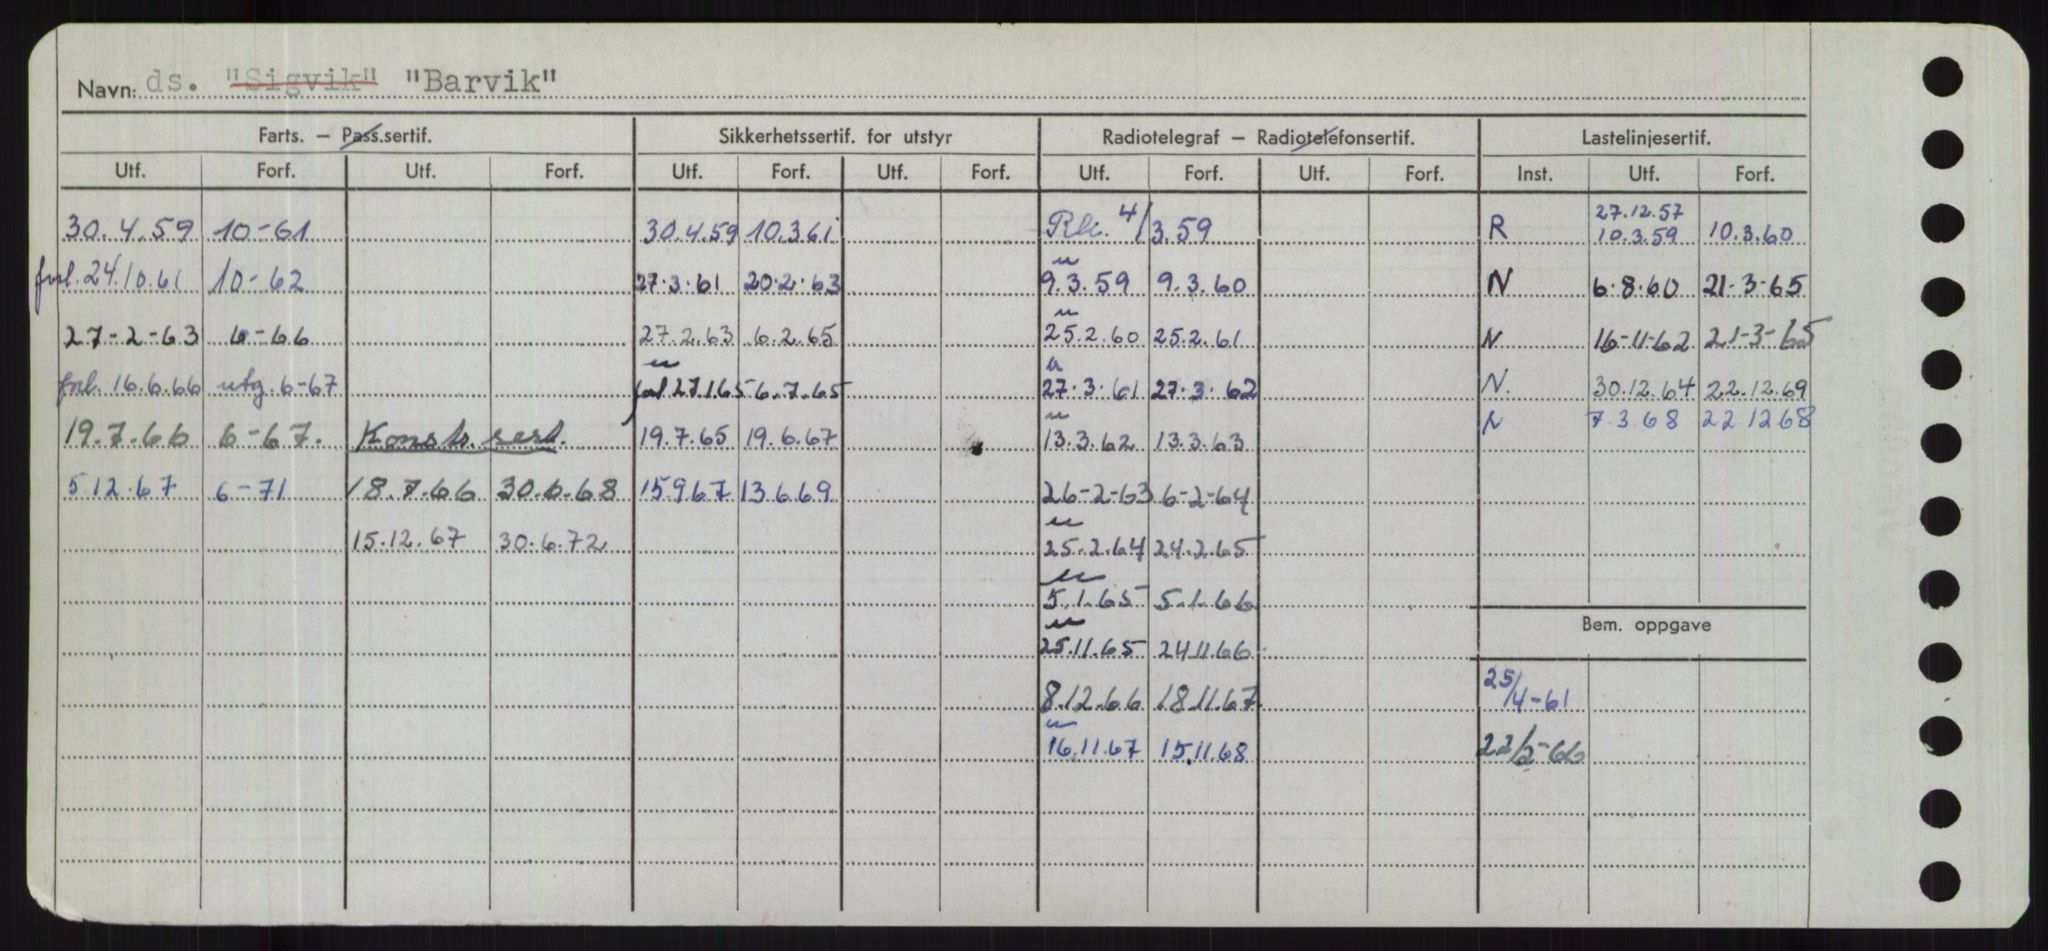 Navn: ds. "Sigvik" "Barvik"
Farts. — Pass.sertif. Sikkerhetssertif. for utstyr Radiotelegraf — Radiotelefonsertif. Lastelinjesertif.
Utf. Forf. Utf. Forf. Utf. Forf. Utf. Forf. Utf. Forf. Utf. Forf. Inst. Utf. Forf.
27.12.57
30.4.59 10-61 30.4.59 10.3.61 4/3.59 R 10.3.59 10.3.60
24.10.61 10-62 27.3.61 20.2.63 " 9.3.59 9.3.60 N 6.8.60 21-3-65
27-2-63 6-66 27.2.63 6.2.65 " 25.2.60 25.2.61 N 16-11-62 21-3-65
forl. 16.6.66 utg. 6-67 " forl 27.1.65 6.7.65 " 27.3.61 27.3.62 N. 30.12.64 22.12.69
19.7.66 6-67. Konstr. sert. 19.7.65 19.6.67 " 13.3.62 13.3.63 N 7.3.68 22.12.68
5.12.67 6-71 18.7.66 30.6.68 15.9.67 13.6.69 26-2-63 6-2-64
15.12.67 30.6.72 " 25.2.64 24.2.65
" 5.1.65 5.1.66
Bem. oppgave
" 25.11.65 24.11.66
8.12.66 18.11.67 25/4-61
" 16.11.67 15.11.68 22/2-66